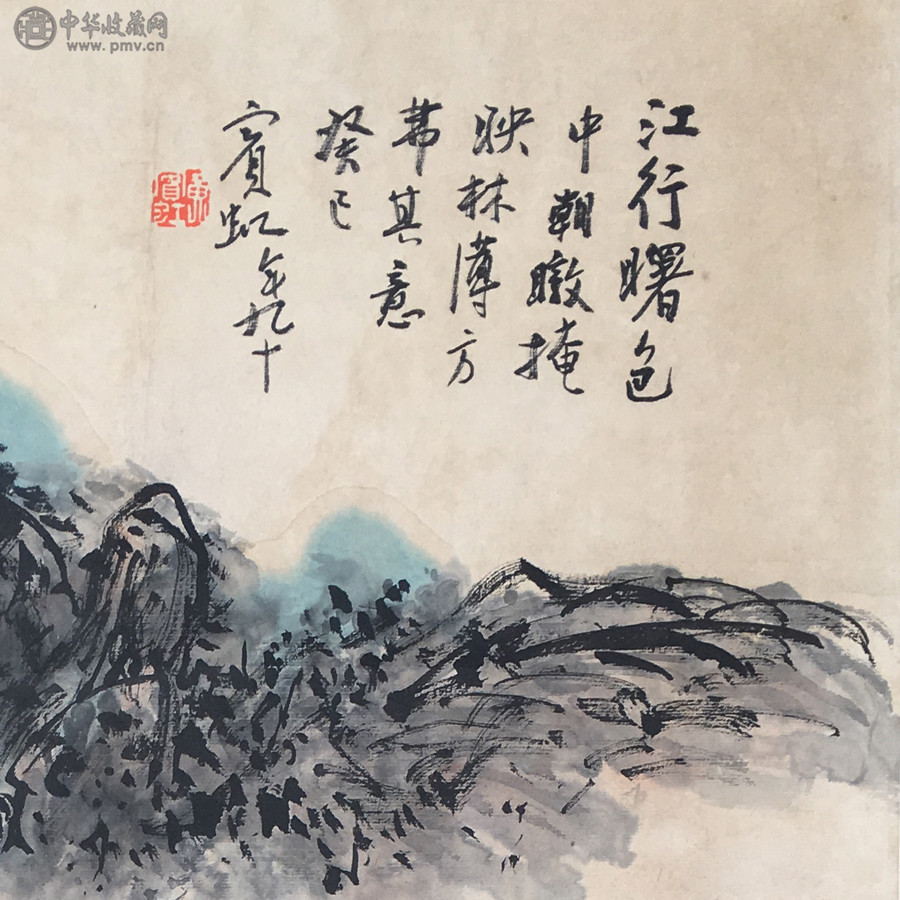 中华收藏网
www.pmv.cn
江行曙色
中朝暾掩
映林薄方
其意
癸巳
宾虹年九十